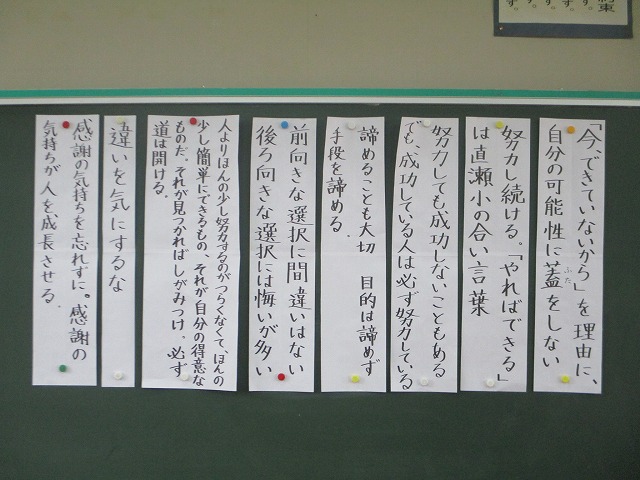 「今、できていないから」を理由に、
自分の可能性に蓋をしない
ふた
努力し続ける。「やればできる」
は直瀬小の合い言葉
努力しても成功しないこともある
でも、成功している人は必ず努力している
諦めることも大切　目的は諦めず
手役を諦める
前向きな選択に間違いはない
後ろ向きな選択には悔いが多い
人よりほんの少し努力するのがつらくなくて、ほんの
少し簡単にできるもの、それが自分の得意な
ものだ。それが見つかればしがみつけ。必ず
道は開ける。
違いを気にするな
感謝の気持ちを忘れずに。感謝の
気持ちが人を成長させる。